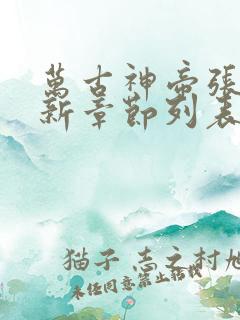 萬古神帝張
新章節列表
猫子 志之村旭
未径同意禁止转载